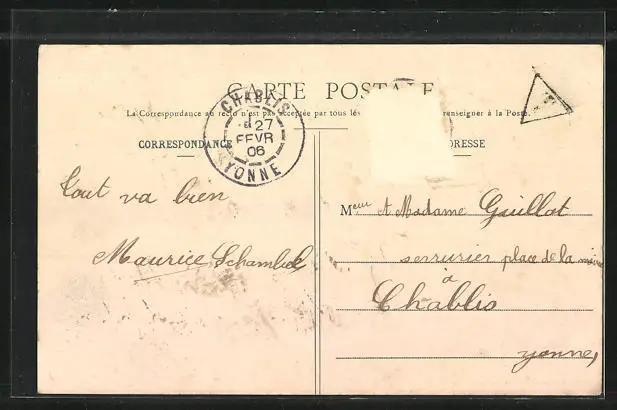 CARTE POSTALE
La Correspondance au recto n'est pas acceptée par tous les renseigner à la Poste.
CORRESPONDANCE
DRESSE
CHABLIS
27
FEVR
06
YONNE
Tout va bien
Maurice
Meur & Madame Guillot
serrurier place de la
à
Chablis
yonne,